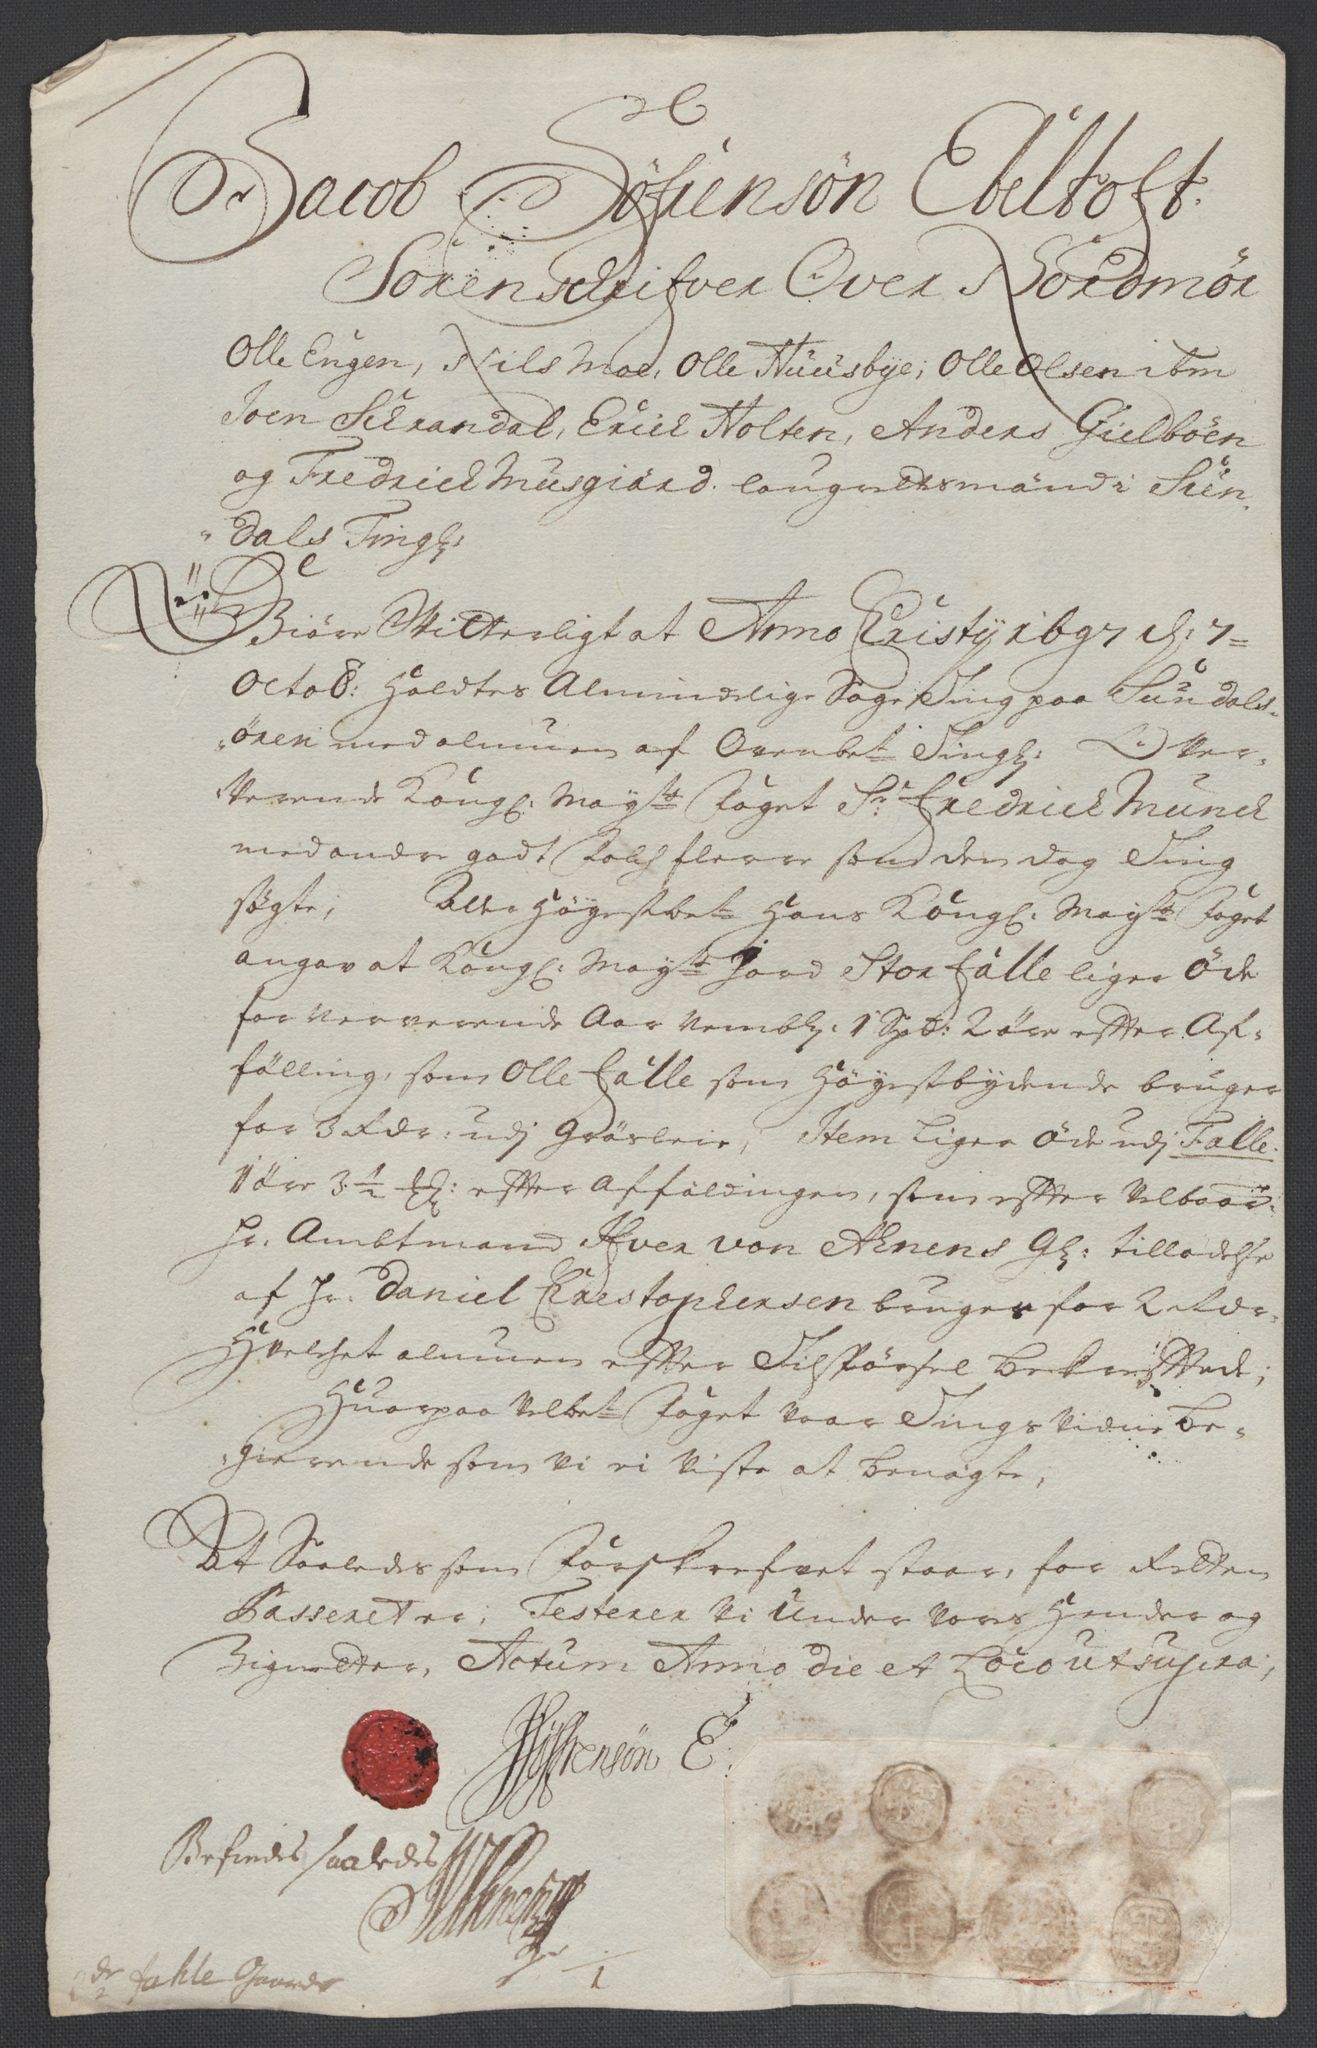 Jacob Söfrensön Ebeltoft.
Sorenschrifver Over Nordmör
Olle Eugen, Nils Moe, Olle Huusbye, Olle Olsen ibm
Joen Schrandal, Erich Holten, Anders Gielböen
og Fredrich Musgiærd laugrettsmænd i Sun,
"dals Tingl:
Giöre Witterligt at Anno Christy 1697 d: 7
Octob: holdtes Almindelige Sage Ting paa Sundals-
"ören med almuen af Ovenbete Tingl: Over-
Verende Kongl: Mayts Foget Sr. Fredrich Munch
med andre godt folch flerre som den dag Ting
søgte; Aller Höyestbete Hans Kongl: Mayts Foget
angav at Kongl: Mayts Jord Stor Falle liger Öde
for nerverende Aar 1 Spd: 2 öre efter Af-
fälling, som Olle Falle som Höyestbydende bruger
for 3 udj Græsleie, Item liger Öde udj Falle
1 öre 3 1/2 efter Affäldingen, som efter Velbaar:
Hr. Ambtmand Ifver von Ahnens Gl: tilladelse
af Hr. Daniel Christophersen bruger for 2
Hvelchet almuen efter Tilspörsel bekreftede;
Huorpaa Velbete Foget Vaar Tings Vidne be-
gierende som Vi ei Viste at benægte,
At Saaledes som Forskrefvet staar, for Retten
Passeret er, Testerer Vi Under Vores Hender og
Signetter, Actum Anno die et Loco ut supra,
JSöfrensön E:
Befindes saaledes
IvAhnen
1
fahle Gaarde